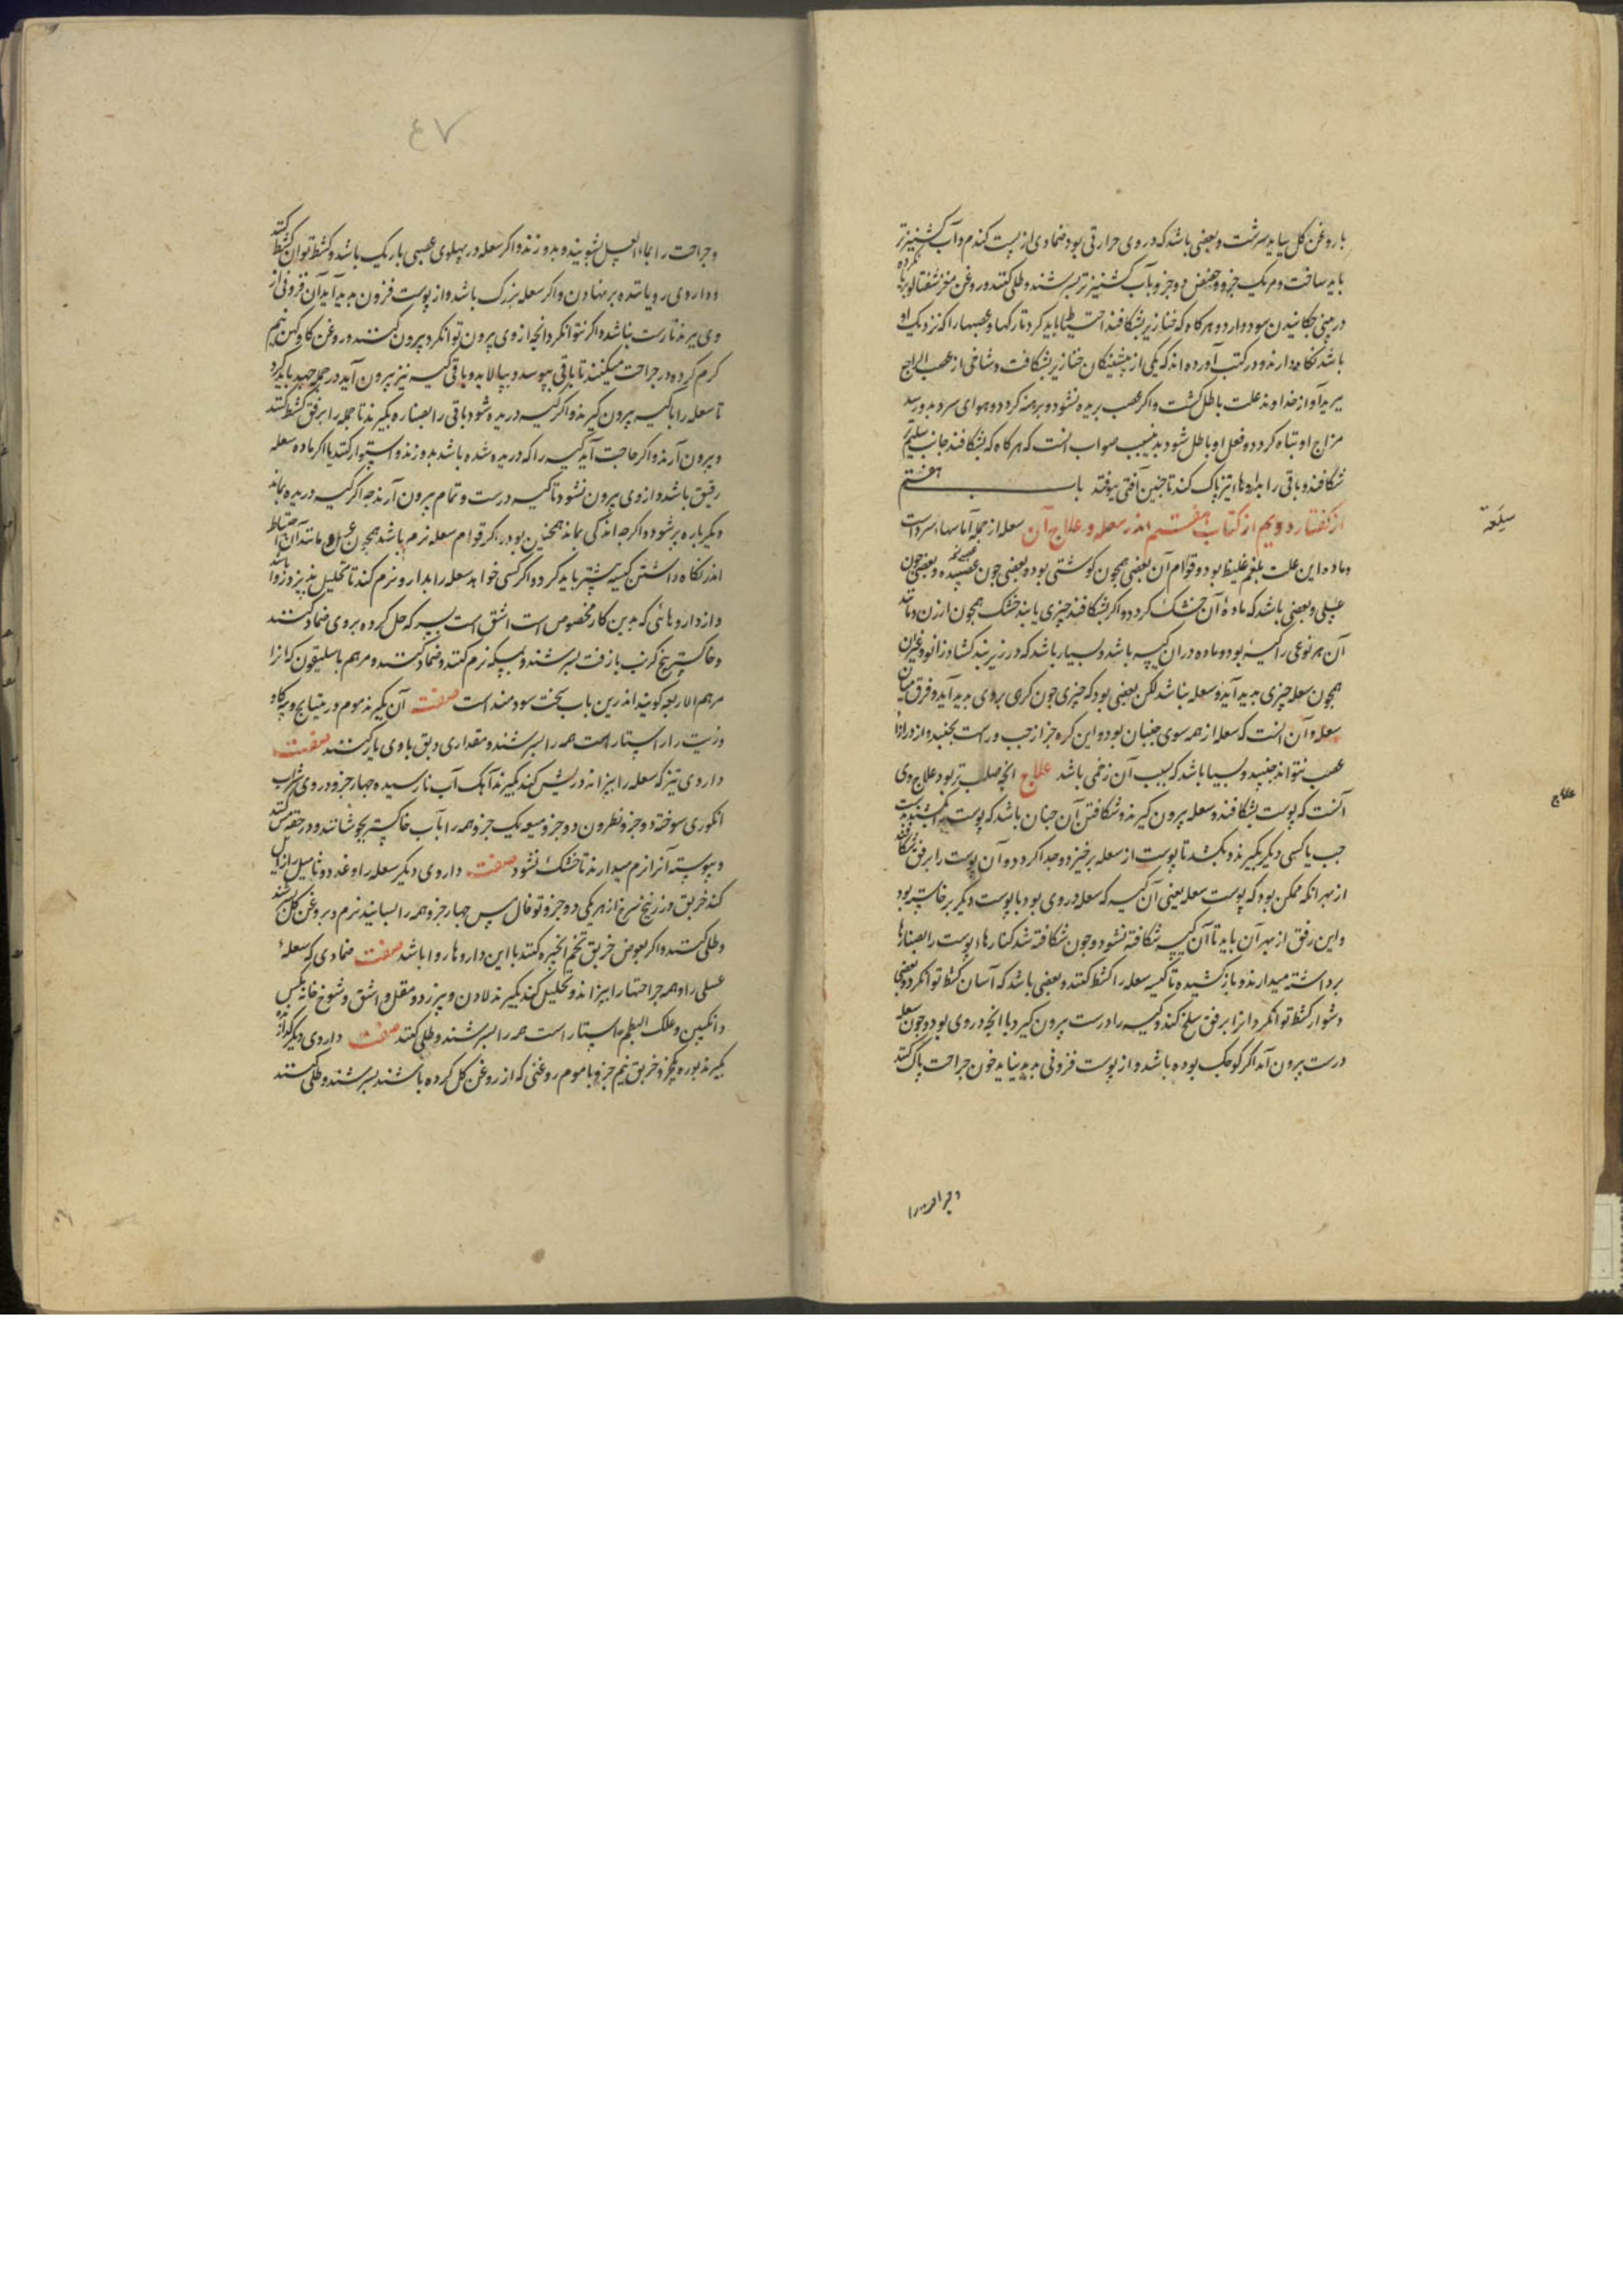 با روغن کل بباید سرشت و بعضی باشد که در وی حرارتی بود ضمادی از پست کندم و آب کشنیز تر
باید ساخت و مر یک جزو و حضض دو جزو بآب کشنیز تر بسرشند و طلی کنند و روغن مغز شفتالو
در بینی چکانیدن سود دارد و هرکاه که خنازیر بشکافند احتیاط باید کرد تا رکها و عصبها را که نزدیک او
باشد نکاه دارند و در کتب آورده اند که یکی از پیشینکان خنازیر بشکافت و شاخی از عصب الراجع
ببرید آواز خداوند علت باطل کشت و اکر عصب بریده نشود و برهنه کردد و هوای سرد بدو رسد
مزاج او تباه کردد و فعل او باطل شود بدین سبب صواب انست که هر کاه که بشکافند جانب سلیم تر
شکافند و باقی را بداروهاء تیز پاک کنند تا چنین آفتی نیوفتد باب هفتم
از کفتار دویم از کتاب هفتم اندر سعله و علاج آن سعله از جمله آماسهاء سرد است
سلعة
و ماده این علت بلغم غلیظ بود و قوام آن بعضی همچون کوشتی بود و بعضی چون عصیده و بعضی چون
عسلی و بعضی باشد که ماده آن خشک کردد و اکر بشکافند چیزی یابند خشک همچون ارزن و مانند
آن هر نوعی را کیسه بود و ماده در ان کیسه باشد و بسیار باشد که در زیر بند کشاد زانو و غیر آن
همچون سعله چیزی بدید آید و سعله نباشد لکن بعضی بود که چیزی چون کرهی بر وی بدید آید و فرق میان
سعله و آن انست که سعله از همه سوی جنبان بود و این کره جز از چپ و راست نجنبد و از درازا
عصب نتواند جنبید و بسیار باشد که سبب آن زخمی باشد علاج انچه صلب تر بود علاج وی
علاج
آنست که پوست بشکافند و سعله بیرون کیرند و شکافتن آن چنان باشد که پوست بانکشتان دست
چپ یا کسی دیکر بکیرند و بکشند تا پوست از سعله برخیزد و جدا کردد و آن پوست را برفق بشکافند
از بهر انکه ممکن بود که پوست سعله یعنی آن کیسه که سعله در وی بود با پوست دیکر برخاسته بود
و این رفق از بهر آن باید تا آن کیسه شکافته نشود و چون شکافته شد کنارهاء پوست را بصنارها
برداشته میدارند و باز کشیده تا کیسه سعله را کشط کنند و بعضی باشد که آسان کشط توانکرد و بعضی
دشوار کشط توانکرد و انرا برفق سلخ کنند و کیسه را درست بیرون کیرند با انچه در وی بود و چون سعله
درست بیرون آمد اکر کوچک بوده باشد و از پوست فزونی بدید نیاید خون جراحت پاک کنند
و جراحت را
۴۷
و جراحت را بماء العسل بشویند و بدوزند و اکر سعله در پهلوی عصبی باریک باشد و کشط توان کشط کنند
و داروی رویاننده بر نهادن و اکر سعله بزرک باشد و از پوست فزون بدید آید آن فزونی از
وی ببرند تا رست نباشد و اکر نتوانکرد انچه از وی بیرون توانکرد بیرون کنند و روغن کاو کهن نیم
کرم کرده در جراحت میکنند تا باقی بپوسد و بپالاید و باقی کیسه نیز بیرون آید در جمله جهد باید کرد
تا سعله را با کیسه بیرون کیرند و اکر کیسه دریده شود باقی را بصناره بکیرند تا جمله را برفق کشط کنند
و بیرون آرند و اکر حاجت آید کیسه را که دریده شده باشد بدوزند و استوار کنند یا اکر ماده سعله
رقیق باشد و از وی بیرون نشود تا کیسه درست و تمام بیرون آرند چه اکر کیسه دریده بماند
دیکر باره پر شود و اکر چه اندکی بماند همچنین بود و اکر قوام سعله نرم باشد همچون عسل و مانند آن احتیاط
اندر نکاه داشتن کیسه بیشتر باید کرد و اکر کسی خواهد سعله را بدارو نرم کند تا تحلیل پذیرد روا باشد
و از داروهائی که بدین کار مخصوص است اشق است بسرکه حل کرده بر وی ضماد کنند
و خاکستر بیخ کرنب با زفت بسرشند و بپیکه نرم کنند و ضماد کنند و مرهم باسلیقون که انرا
مرهم الاربعه کویند اندرین باب سخت سودمند است صفت آن بکیرند موم و ریتیانج و پیه کاو
و زیت راستاراست همه را بسرشند و مقداری دبق با وی یار کنند صفت
داروی تیز که سعله را بپزاند و ریش کند بکیرند آهک آب نارسیده چهار جزو دردی شراب
انکوری سوخته دو جزو نطرون دو جزو میعه یک جزو همه را بآب خاکستر بجوشانند و در حقه مس کنند
و پیوسته آنرا نرم میدارند تا خشک نشود صفت داروی دیکر سعله را و غدد و ثالیل را زایل
کند خربق و زرنیخ سرخ از هر یکی دو جزو توفال مس چهار جزو همه را بسایند نرم و بروغن کل بسرشند
و طلی کنند و اکر بعوض خربق تخم انجیره کنند با این داروها روا باشد صفت ضمادی که سعله
عسلی را و همه جراحتها را بپزاند و تحلیل کند بکیرند لادن و بیرزد و مقل و اشق و شوخ خانه مکس
و انکبین و علک البطم راستاراست همه را بسرشند و طلی کنند صفت داروی دیکر کدازنده
بکیرند بوره یک جزو خربق نیم جزو با موم روغنی که از روغن کل کرده باشند بسرشند و طلی کنند